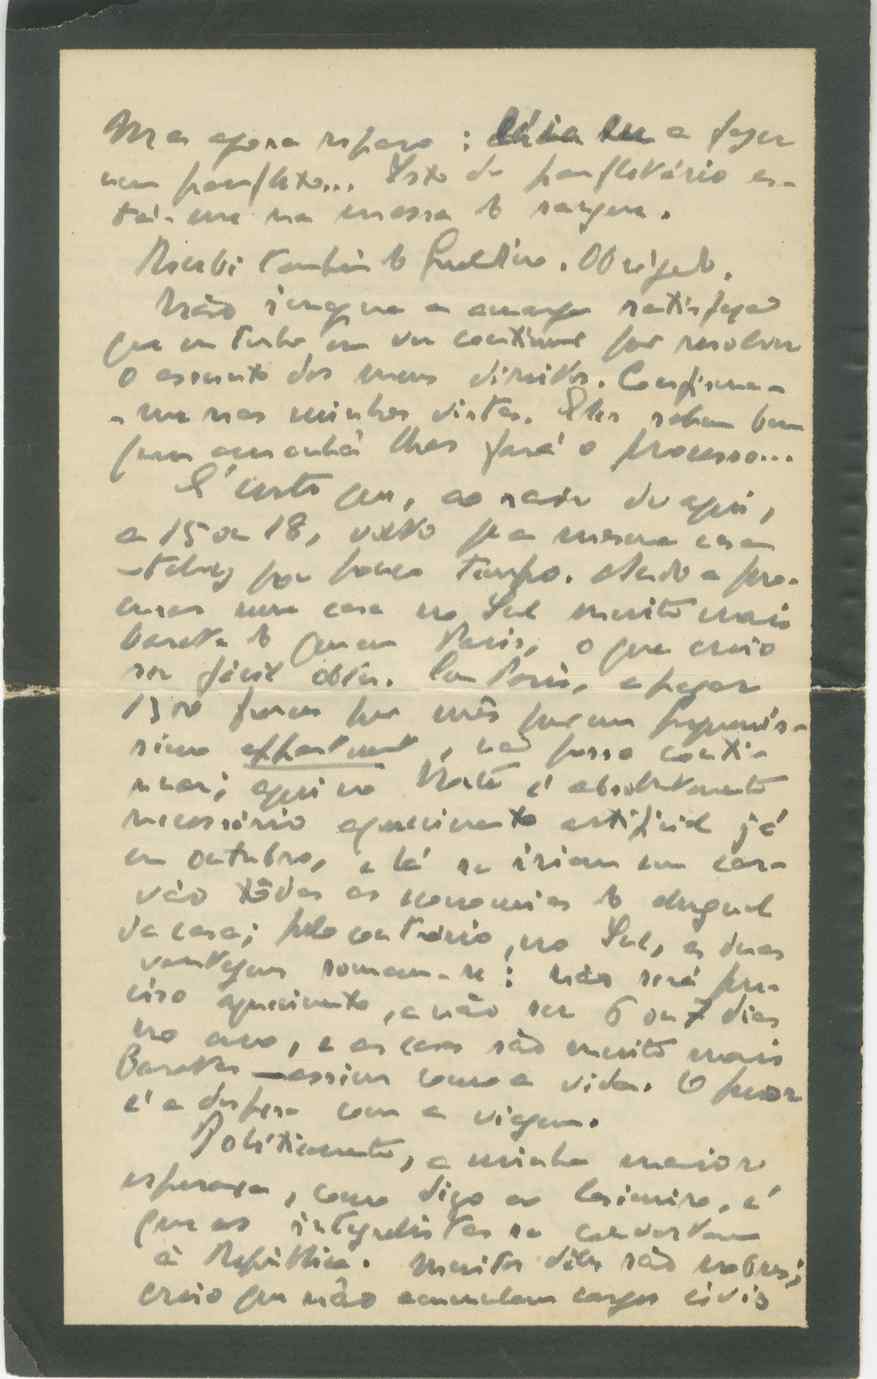 Mas agora reparo: a fazer
um panfleto... Isto de panfletário es-
tá-me na massa do sangue.
Recebi também o . Obrigado.
Não imagina a amarga satisfação
que eu tenho em ver continuar por resolver
o assunto dos meus direitos. Confirma-
-me nas minhas vistas. Eles sabem bem
quem amanhã lhes fará o processo...
É certo que, ao sair de aqui,
a 15 ou 18, volto pª a mesma casa
por pouco tempo. Ando a pro-
curar uma casa no Sul muito mais
barata do que em Paris, o que creio
ser fácil obter. Em Paris, a pagar
1300 francos por mês por um pequenís-
simo appartement, não posso conti-
nuar; aqui no Norte é absolutamente
necessário aquecimento artificial já
em outubro, e lá se iriam em car-
vão tôdas as economias do aluguel
da casa; pelo contrário, no Sul, as duas
vantagens somam-se: não será pre-
ciso aquecimento, a não ser 6 ou 7 dias
no ano, e as casas são muito mais
baratas — assim como a vida. O peor
é a despesa com a viagem.
Politicamente, a minha maior
esperança, como digo ao Casimiro, é
que os integralistas se convertam
à República. Muitos deles são nobres;
creio que não acumulam cargos civis